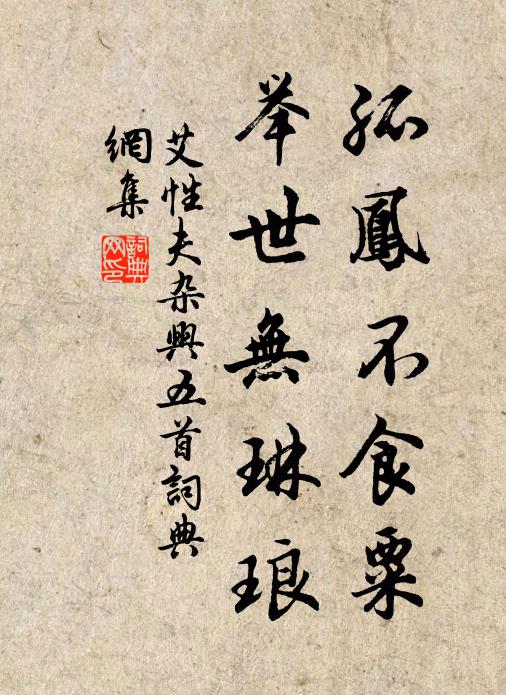 孤鳳不食粟
举世無琳琅
艾性夫杂興五首詞典
網集
詞典
网印